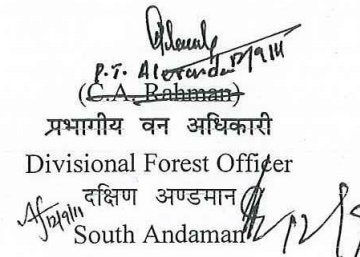 P.T. Alexander 12/9/11
(C.A. Rahman)
प्रभागीय वन अधिकारी
Divisional Forest Officer
दक्षिण अण्डमान
12/9/11
South Andaman